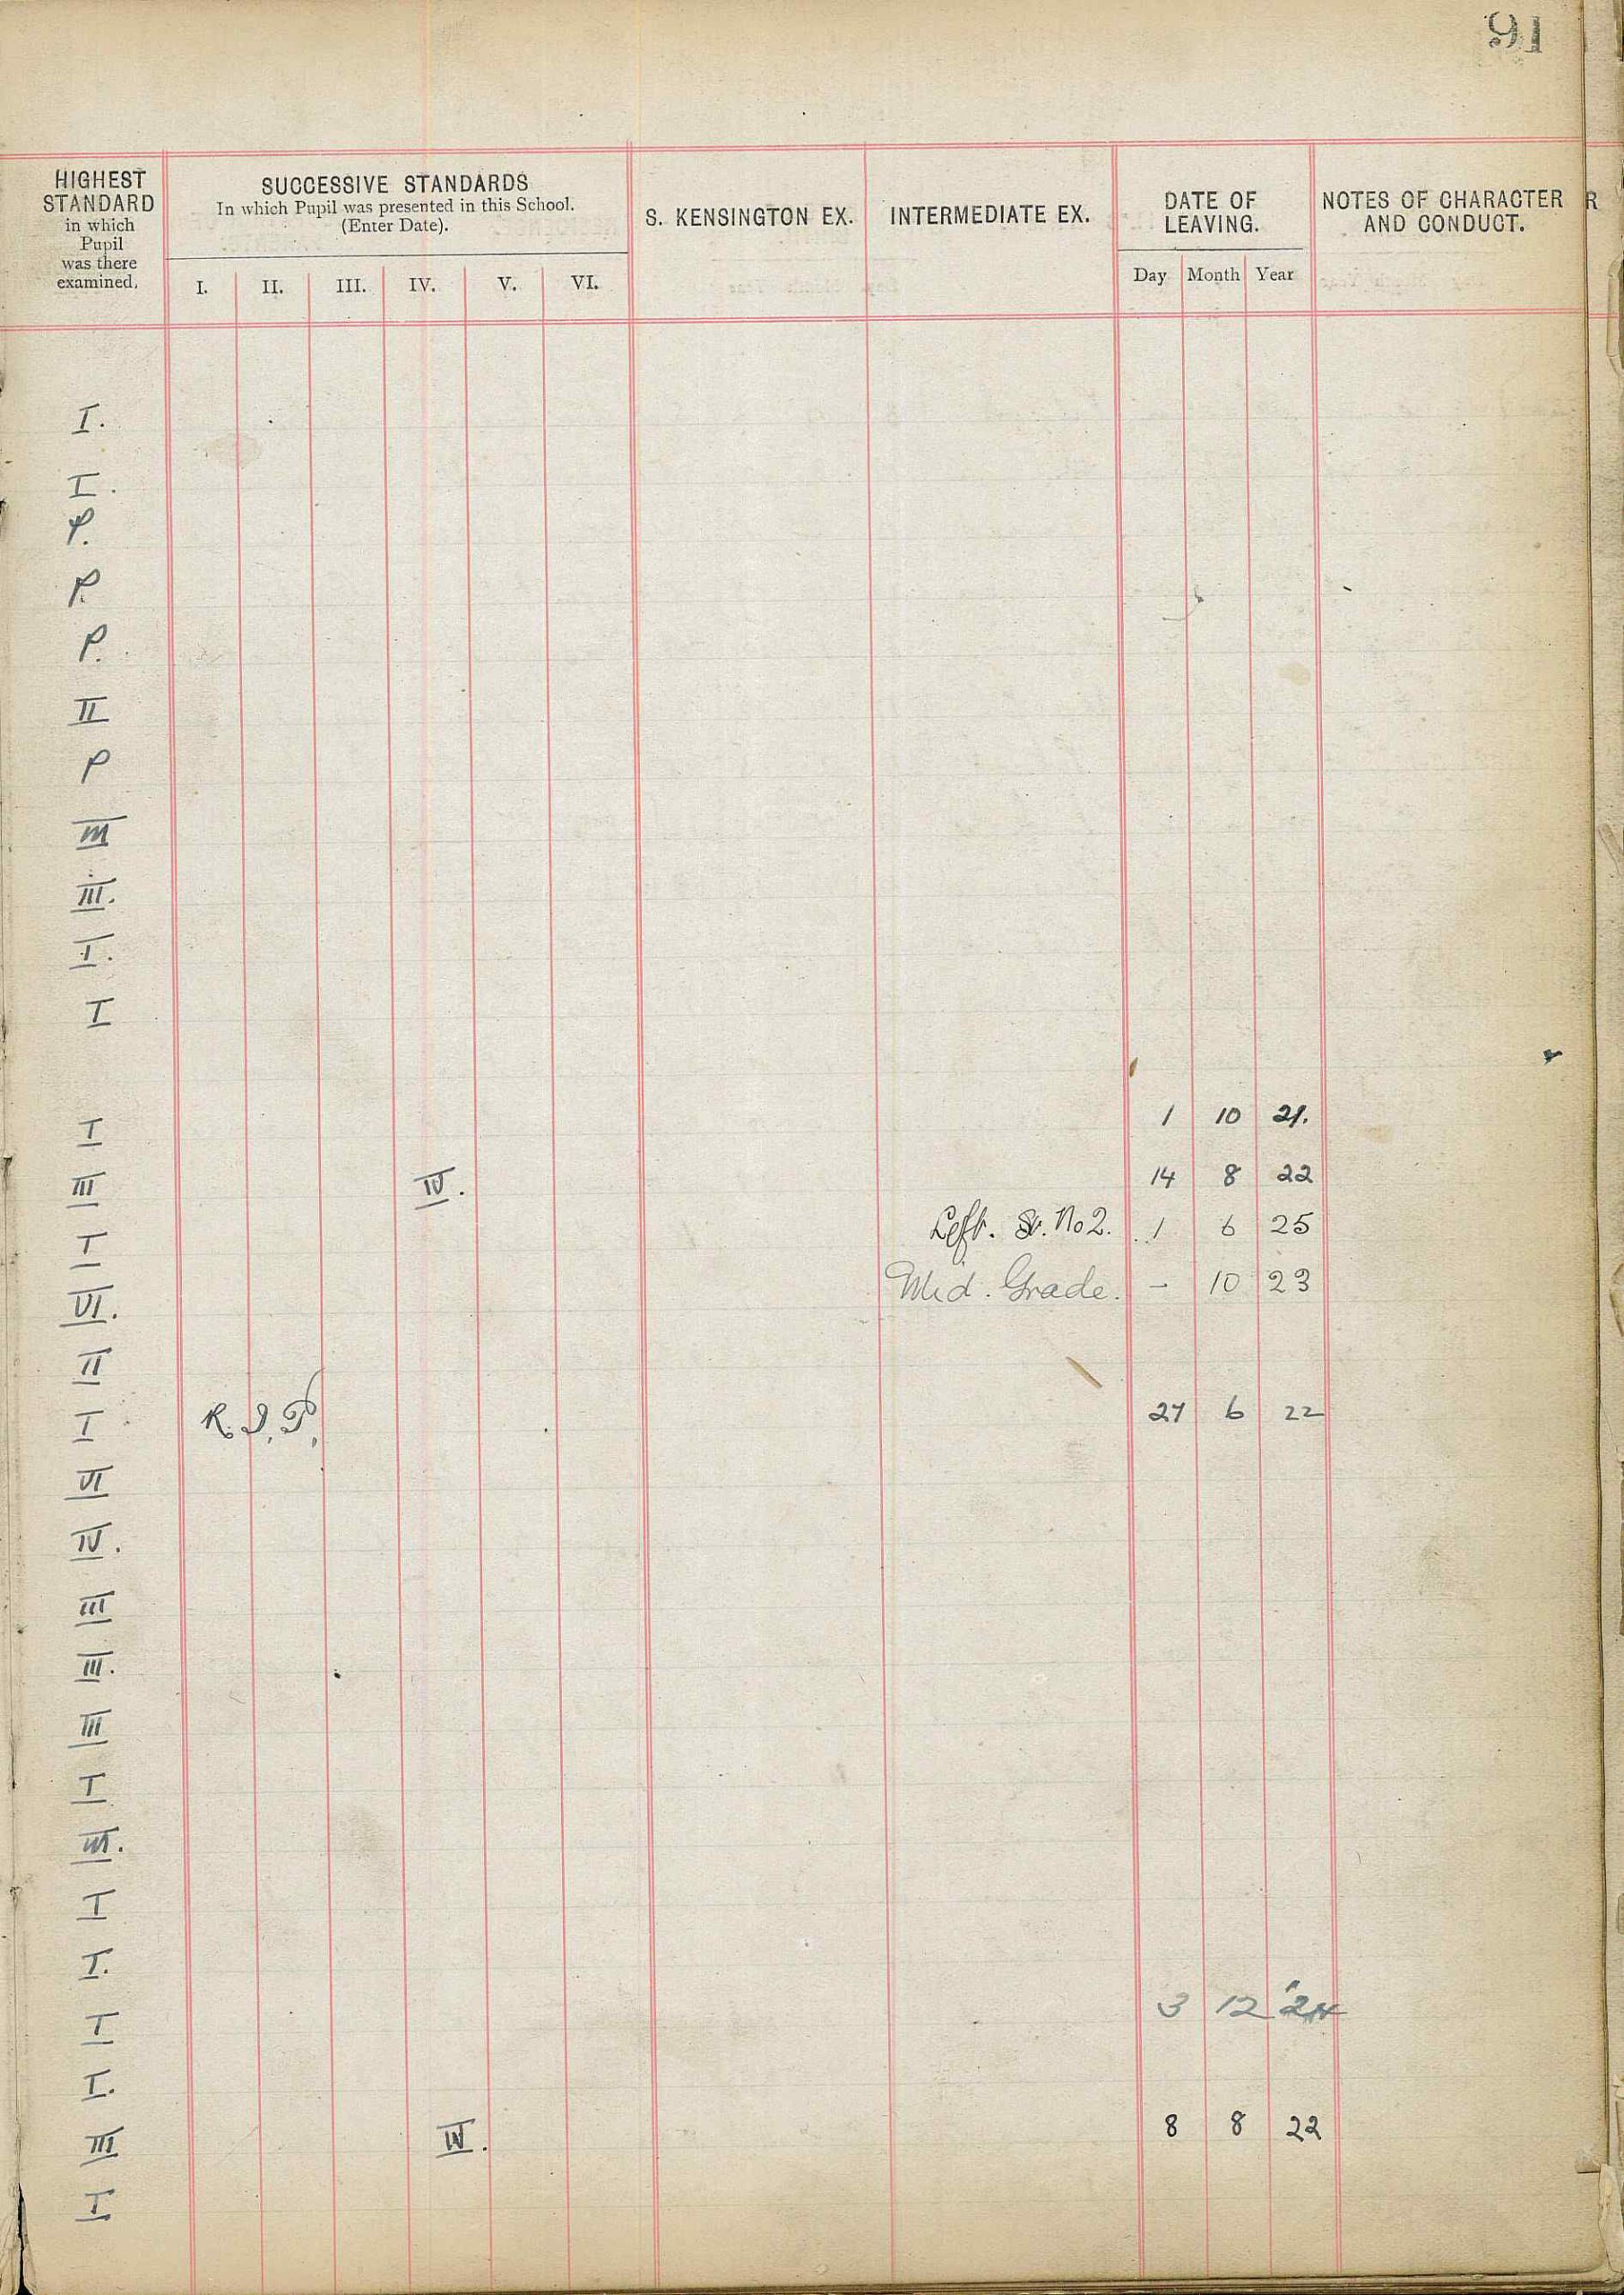 91
HIGHEST STANDARD in which Pupil was there examined,
SUCCESSIVE STANDARDS
In which Pupil was presented in this School.
(Enter Date).
I. II. III. IV. V. VI.
S. KENSINGTON EX.
INTERMEDIATE EX.
DATE OF LEAVING.
Day Month Year
NOTES OF CHARACTER AND CONDUCT.
R
I.
I.
P.
P.
P.
II
P
III
III.
I.
I
I 1 10 21.
III IV. 14 8 22
I Left. Sr. No 2. 1 6 25
VI. Mid. Grade. – 10 23
II
I R. I. P. 27 6 22
VI
IV.
III
III.
III
I
III.
I
I.
I 3 12 '24
I.
III IV. 8 8 22
I